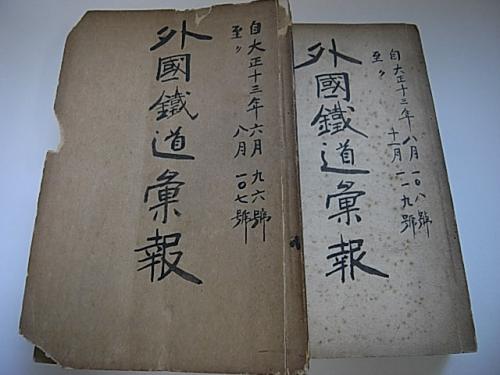 自大正十三年六月九六號
至〃 八月一〇七號
外國鐵道彙報
自大正十三年八月一〇八號
至〃 十一月一一九號
外國鐵道彙報